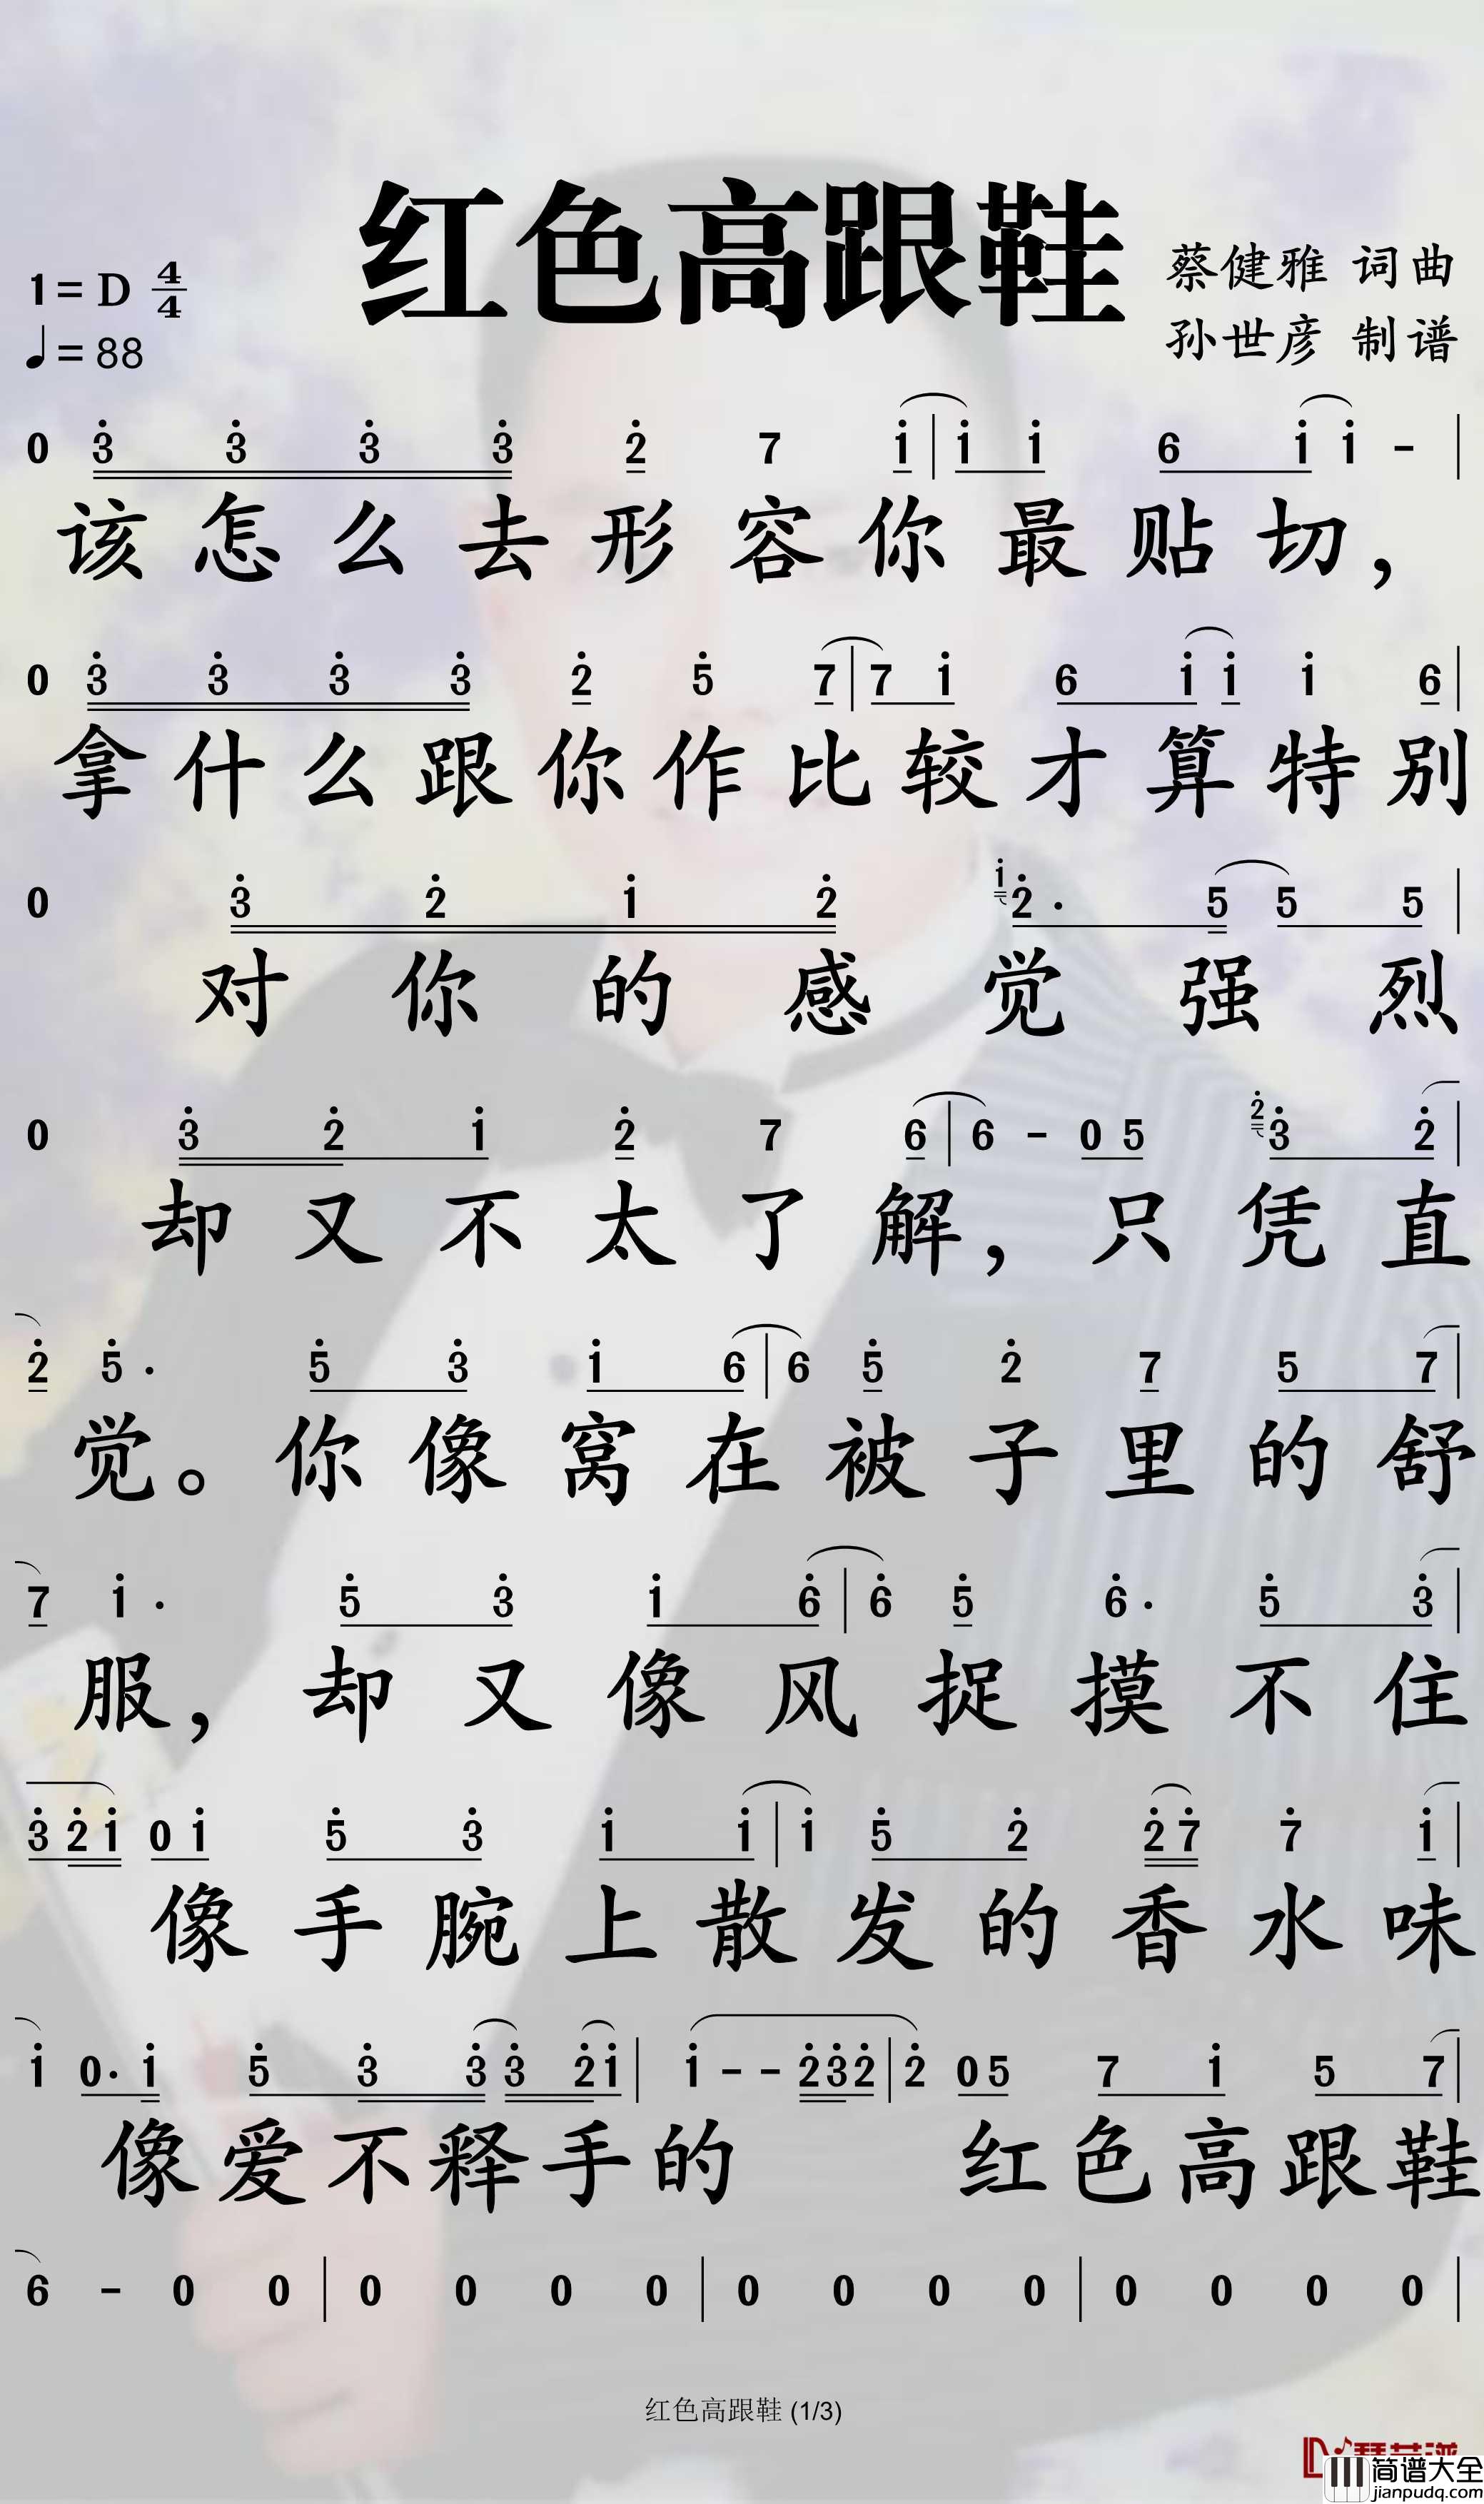 红色高跟鞋
1=D 4/4
♩=88
蔡健雅 词曲
孙世彦 制谱
0 3̇ 3̇ 3̇ 3̇ 2̇ 7 1̇ | 1̇ 1̇ 6 1̇ 1̇ - |
该怎么去形容你最贴切，
0 3̇ 3̇ 3̇ 3̇ 2̇ 5̇ 7 | 7 1̇ 6 1̇ 1̇ 1̇ 6 |
拿什么跟你作比较才算特别
0 3̇ 2̇ 1̇ 2̇ 1̇ 2̇· 5 5 5 |
对你的感觉强烈
0 3̇ 2̇ 1̇ 2̇ 7 6 | 6 - 0 5 2̇ 3̇ 2̇ |
却又不太了解，只凭直
2̇ 5̇· 5̇ 3̇ 1̇ 6 | 6 5̇ 2̇ 7 5 7 |
觉。你像窝在被子里的舒
7 1̇· 5̇ 3̇ 1̇ 6̇ | 6̇ 5̇ 6̇· 5̇ 3̇ |
服，却又像风捉摸不住
3̇ 2̇ 1̇ 0 1̇ 5̇ 3̇ 1̇ 1̇ | 1̇ 5̇ 2̇ 2̇ 7̇ 7̇ 1̇ |
像手腕上散发的香水味
1̇ 0· 1̇ 5̇ 3̇ 3̇ 3̇ 2̇ 1̇ | 1̇ - - 2̇ 3̇ 2̇ | 2̇ 0 5 7 1̇ 5 7 |
像爱不释手的 红色高跟鞋
6 - 0 0 | 0 0 0 0 | 0 0 0 0 | 0 0 0 0 |
红色高跟鞋 (1/3)
简谱大全
jianpudq.com